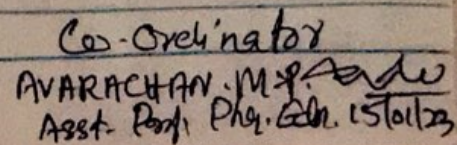 Co-Ordinator
AVARACHAN. M.P.
Asst. Prof. Phy. Edn. 15/01/23